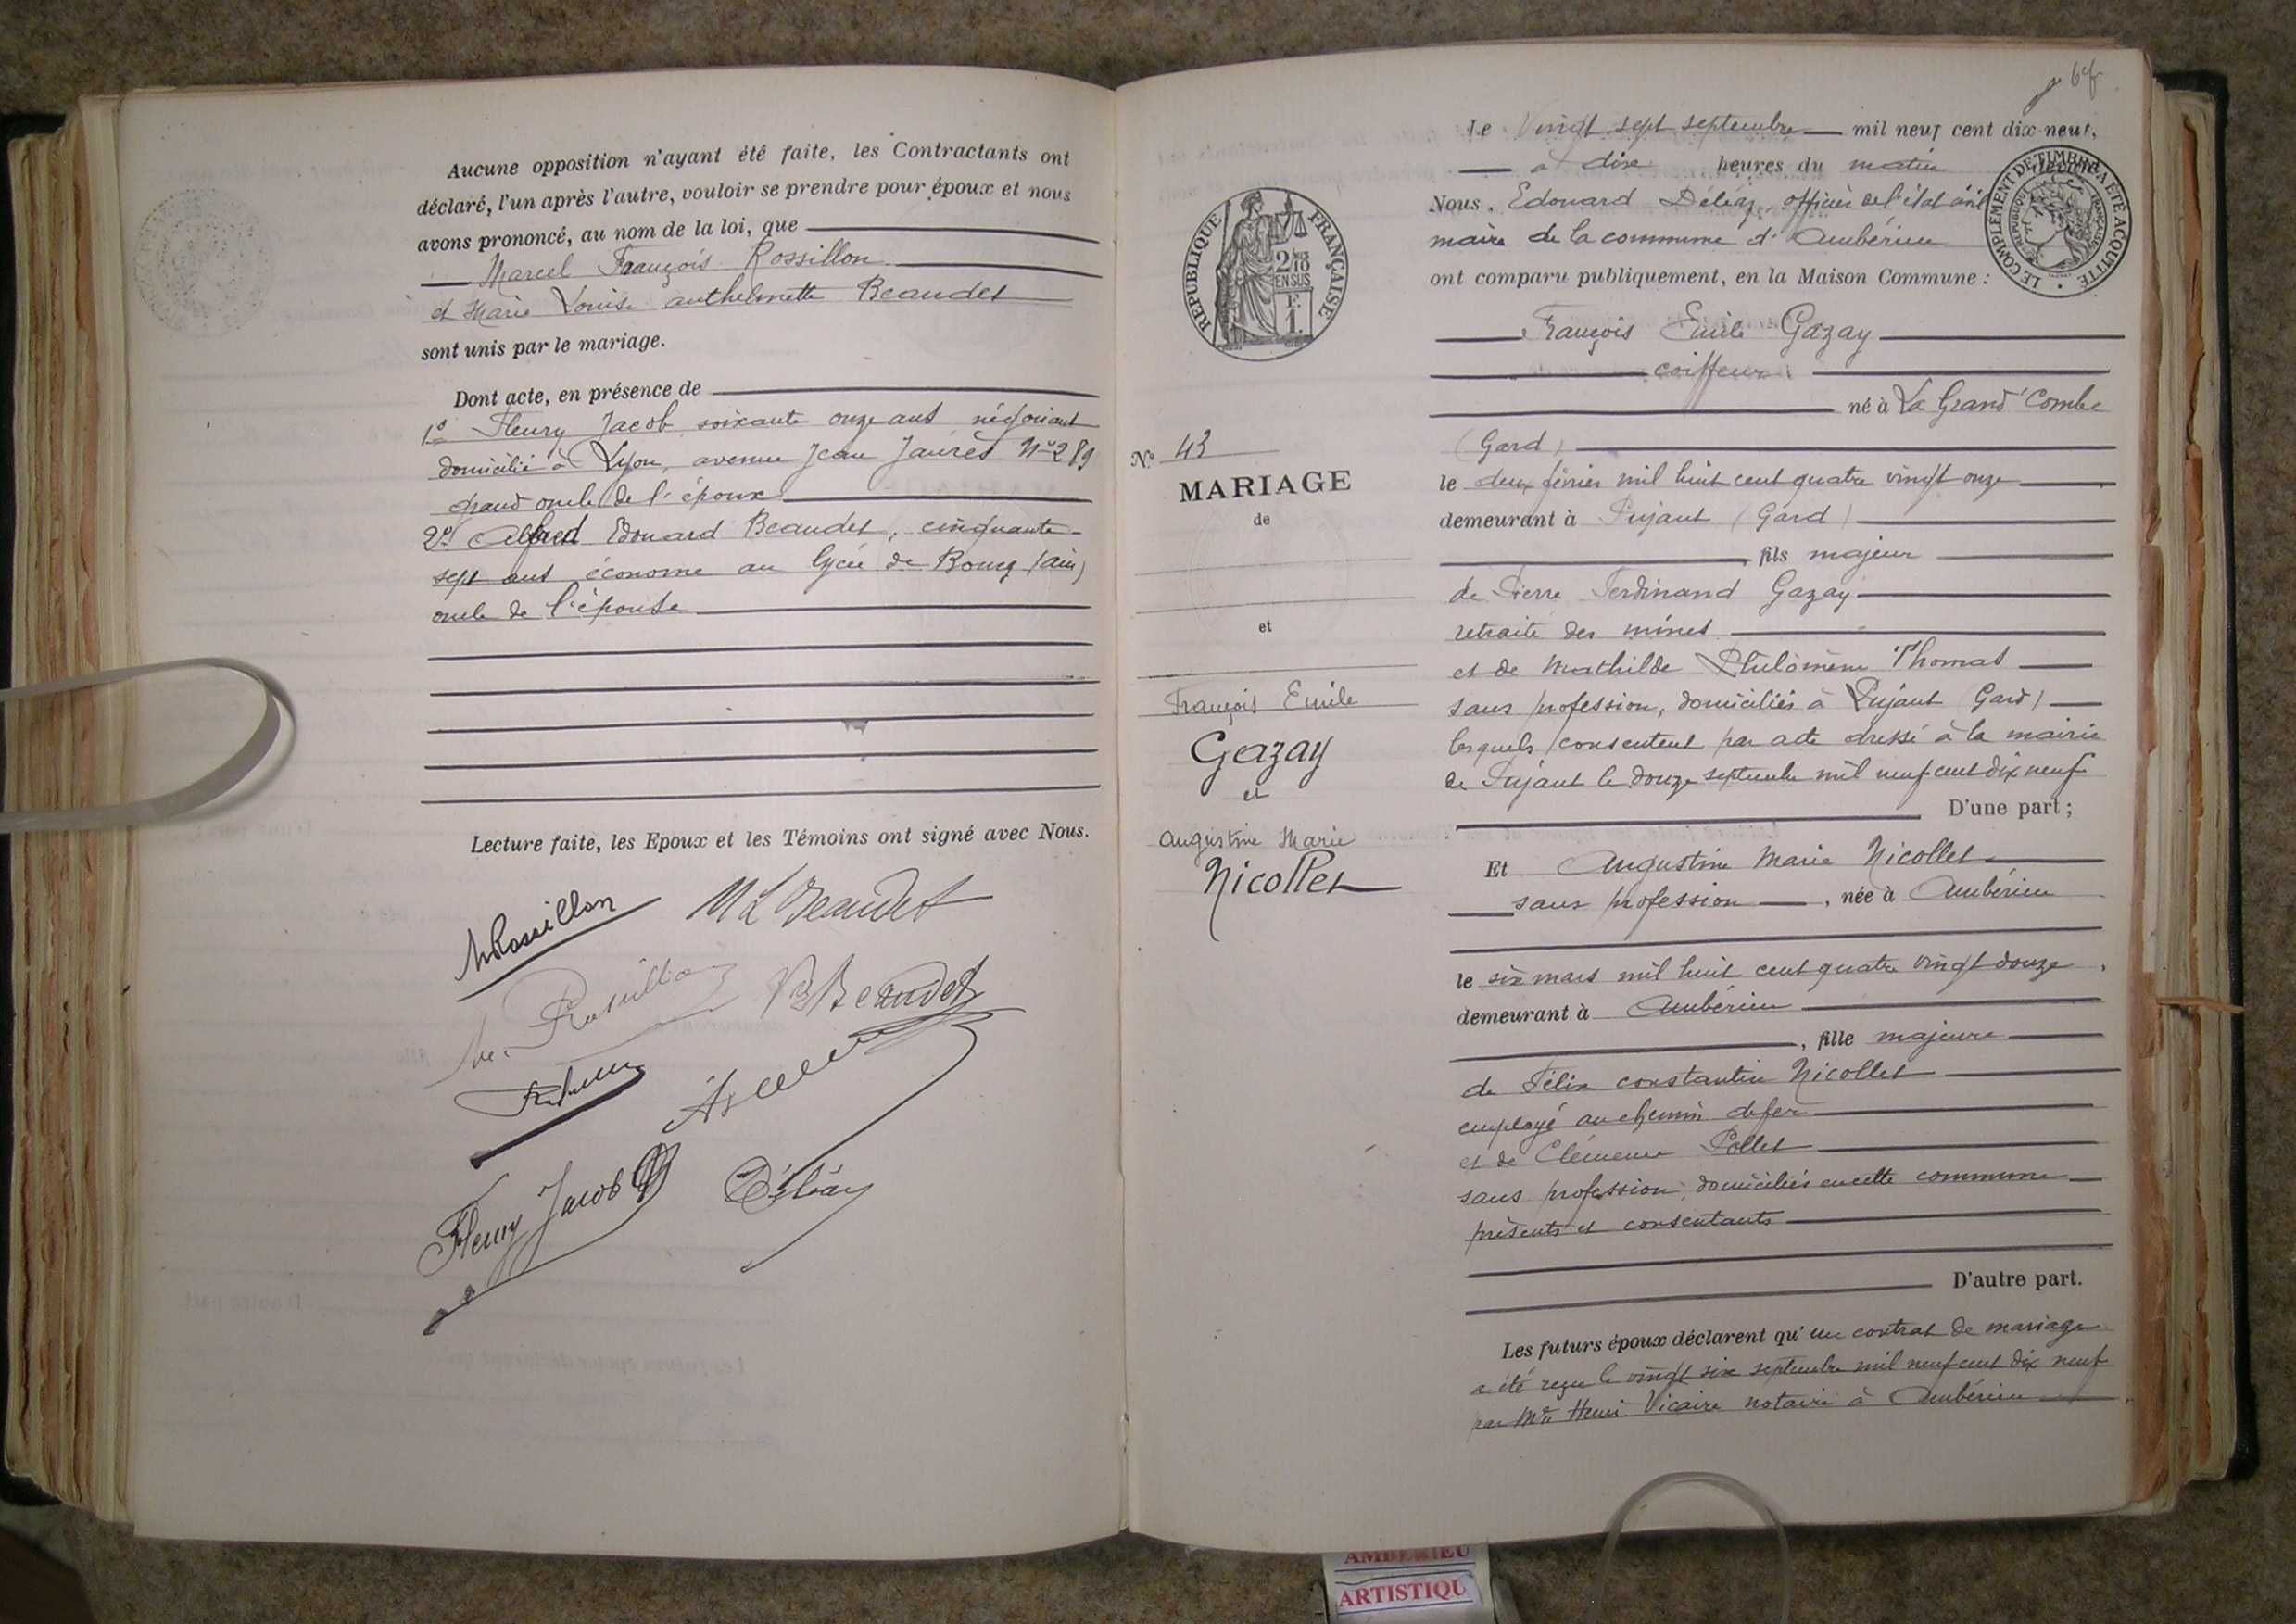 Aucune opposition n'ayant été faite, les Contractants ont
déclaré, l'un après l'autre, vouloir se prendre pour époux et nous
avons prononcé, au nom de la loi, que
Marcel François Rossillon
et Marie Louise anthelmette Beaudet
sont unis par le mariage.
Dont acte, en présence de
1º Fleury Jacob soixante onze ans négociant
domicilié à Lyon, avenue Jean Jaurès Nº 289
grand oncle de l'époux
2º Alfred Edouard Beaudet, cinquante-
sept ans économe au lycée de Bourg (ain)
oncle de l'épouse
Lecture faite, les Epoux et les Témoins ont signé avec Nous.
MRossillon
M L Beaudet
Beaudet
Fleury Jacob
Déléaz
RÉPUBLIQUE FRANÇAISE
2/10
EN SUS
F.
1.
Nº 43
MARIAGE
de
et
François Emile
Gazay
et
Augustine Marie
Nicollet
Le Vingt sept septembre mil neuf cent dix-neuf,
à dix heures du matin
LE COMPLÉMENT DE TIMBRE A ÉTÉ ACQUITTÉ
RÉPUBLIQUE FRANÇAISE
Nous, Edouard Déléaz, officier de l'état civil
maire de la commune d'Ambérieu
ont comparu publiquement, en la Maison Commune :
François Emile Gazay
coiffeur
né à La Grand'Combe
(Gard)
le deux février mil huit cent quatre vingt onze
demeurant à Pujaut (Gard)
fils majeur
de Pierre Ferdinand Gazay
retraité des mines
et de Mathilde Philomène Thomas
sans profession, domiciliés à Pujaut (Gard)
lesquels consentent par acte dressé à la mairie
de Pujaut le douze septembre mil neuf cent dix neuf
D'une part ;
Et Augustine Marie Nicollet
sans profession, née à Ambérieu
le six mars mil huit cent quatre vingt douze,
demeurant à Ambérieu
, fille majeure
de Félix constantin Nicollet
employé au chemin de fer
et de Clémence Pollet
sans profession, domiciliés en cette commune
présents et consentants
D'autre part.
Les futurs époux déclarent qu'un contrat de mariage
a été reçu le vingt six septembre mil neuf cent dix neuf
par Me Henri Vicaire notaire à Ambérieu
AMBERIEU
ARTISTIQU